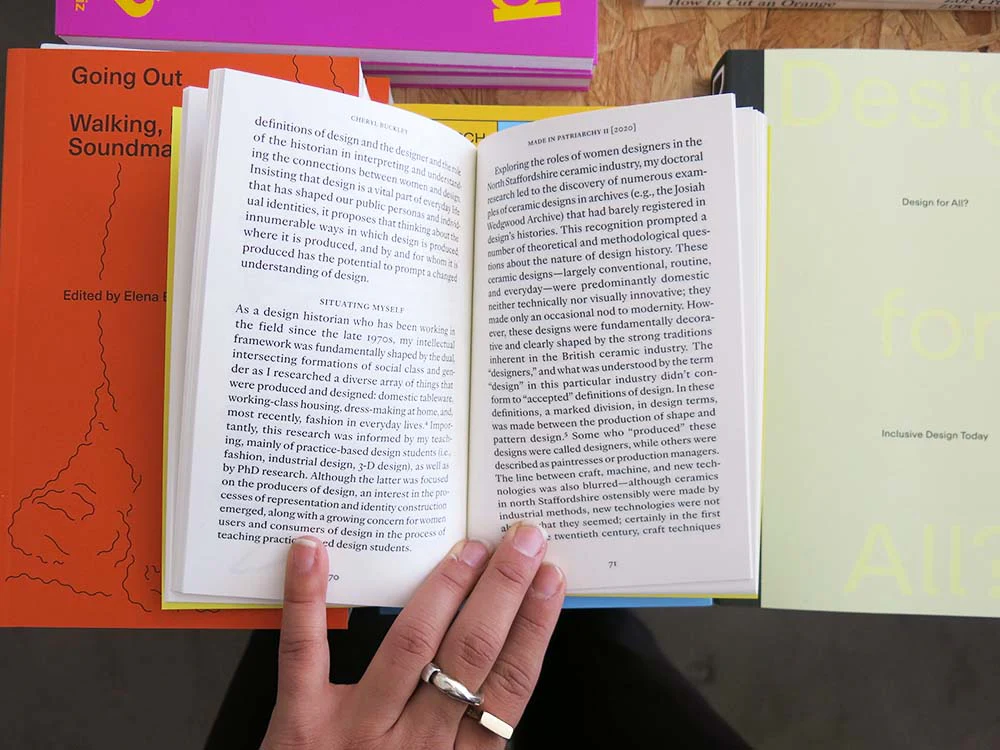 How to Cut an Orange
Going Out
Walking,
Soundma
Edited by Elena
CHERYL BUCKLEY
definitions of design and the designer and the role
of the historian in interpreting and understand-
ing the connections between women and design.
Insisting that design is a vital part of everyday life
that has shaped our public personas and individ-
ual identities, it proposes that thinking about the
innumerable ways in which design is produced,
where it is produced, and by and for whom it is
produced has the potential to prompt a changed
understanding of design.
SITUATING MYSELF
As a design historian who has been working in
the field since the late 1970s, my intellectual
framework was fundamentally shaped by the dual,
intersecting formations of social class and gen-
der as I researched a diverse array of things that
were produced and designed: domestic tableware,
working-class housing, dress-making at home, and,
most recently, fashion in everyday lives.⁴ Impor-
tantly, this research was informed by my teach-
ing, mainly of practice-based design students (i.e.,
fashion, industrial design, 3-D design), as well as
by PhD research. Although the latter was focused
on the producers of design, an interest in the pro-
cesses of representation and identity construction
emerged, along with a growing concern for women
users and consumers of design in the process of
teaching practic ed design students.
70
CH
MADE IN PATRIARCHY II [2020]
Exploring the roles of women designers in the
North Staffordshire ceramic industry, my doctoral
research led to the discovery of numerous exam-
ples of ceramic designs in archives (e.g., the Josiah
Wedgwood Archive) that had barely registered in
design's histories. This recognition prompted a
number of theoretical and methodological ques-
tions about the nature of design history. These
ceramic designs—largely conventional, routine,
and everyday—were predominantly domestic
neither technically nor visually innovative; they
made only an occasional nod to modernity. How-
ever, these designs were fundamentally decora-
tive and clearly shaped by the strong traditions
inherent in the British ceramic industry. The
"designers," and what was understood by the term
"design" in this particular industry didn't con-
form to "accepted" definitions of design. In these
definitions, a marked division, in design terms,
was made between the production of shape and
pattern design.⁵ Some who "produced" these
designs were called designers, while others were
described as paintresses or production managers.
The line between craft, machine, and new tech-
nologies was also blurred—although ceramics
in north Staffordshire ostensibly were made by
industrial methods, new technologies were not
hat they seemed; certainly in the first
twentieth century, craft techniques
71
Desig
Design for All?
for
Inclusive Design Today
All?